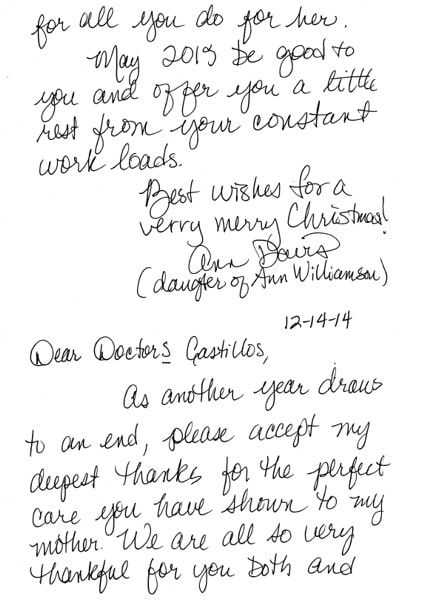 for all you do for her.
May 2015 be good to
you and offer you a little
rest from your constant
work loads.
Best wishes for a
verry merry Christmas!
Ann Davis
(daugter of Ann Williamson)
12-14-14
Dear Doctors Castillos,
As another year draws
to an end, please accept my
deepest thanks for the perfect
care you have shown to my
mother. We are all so very
thankful for you both and